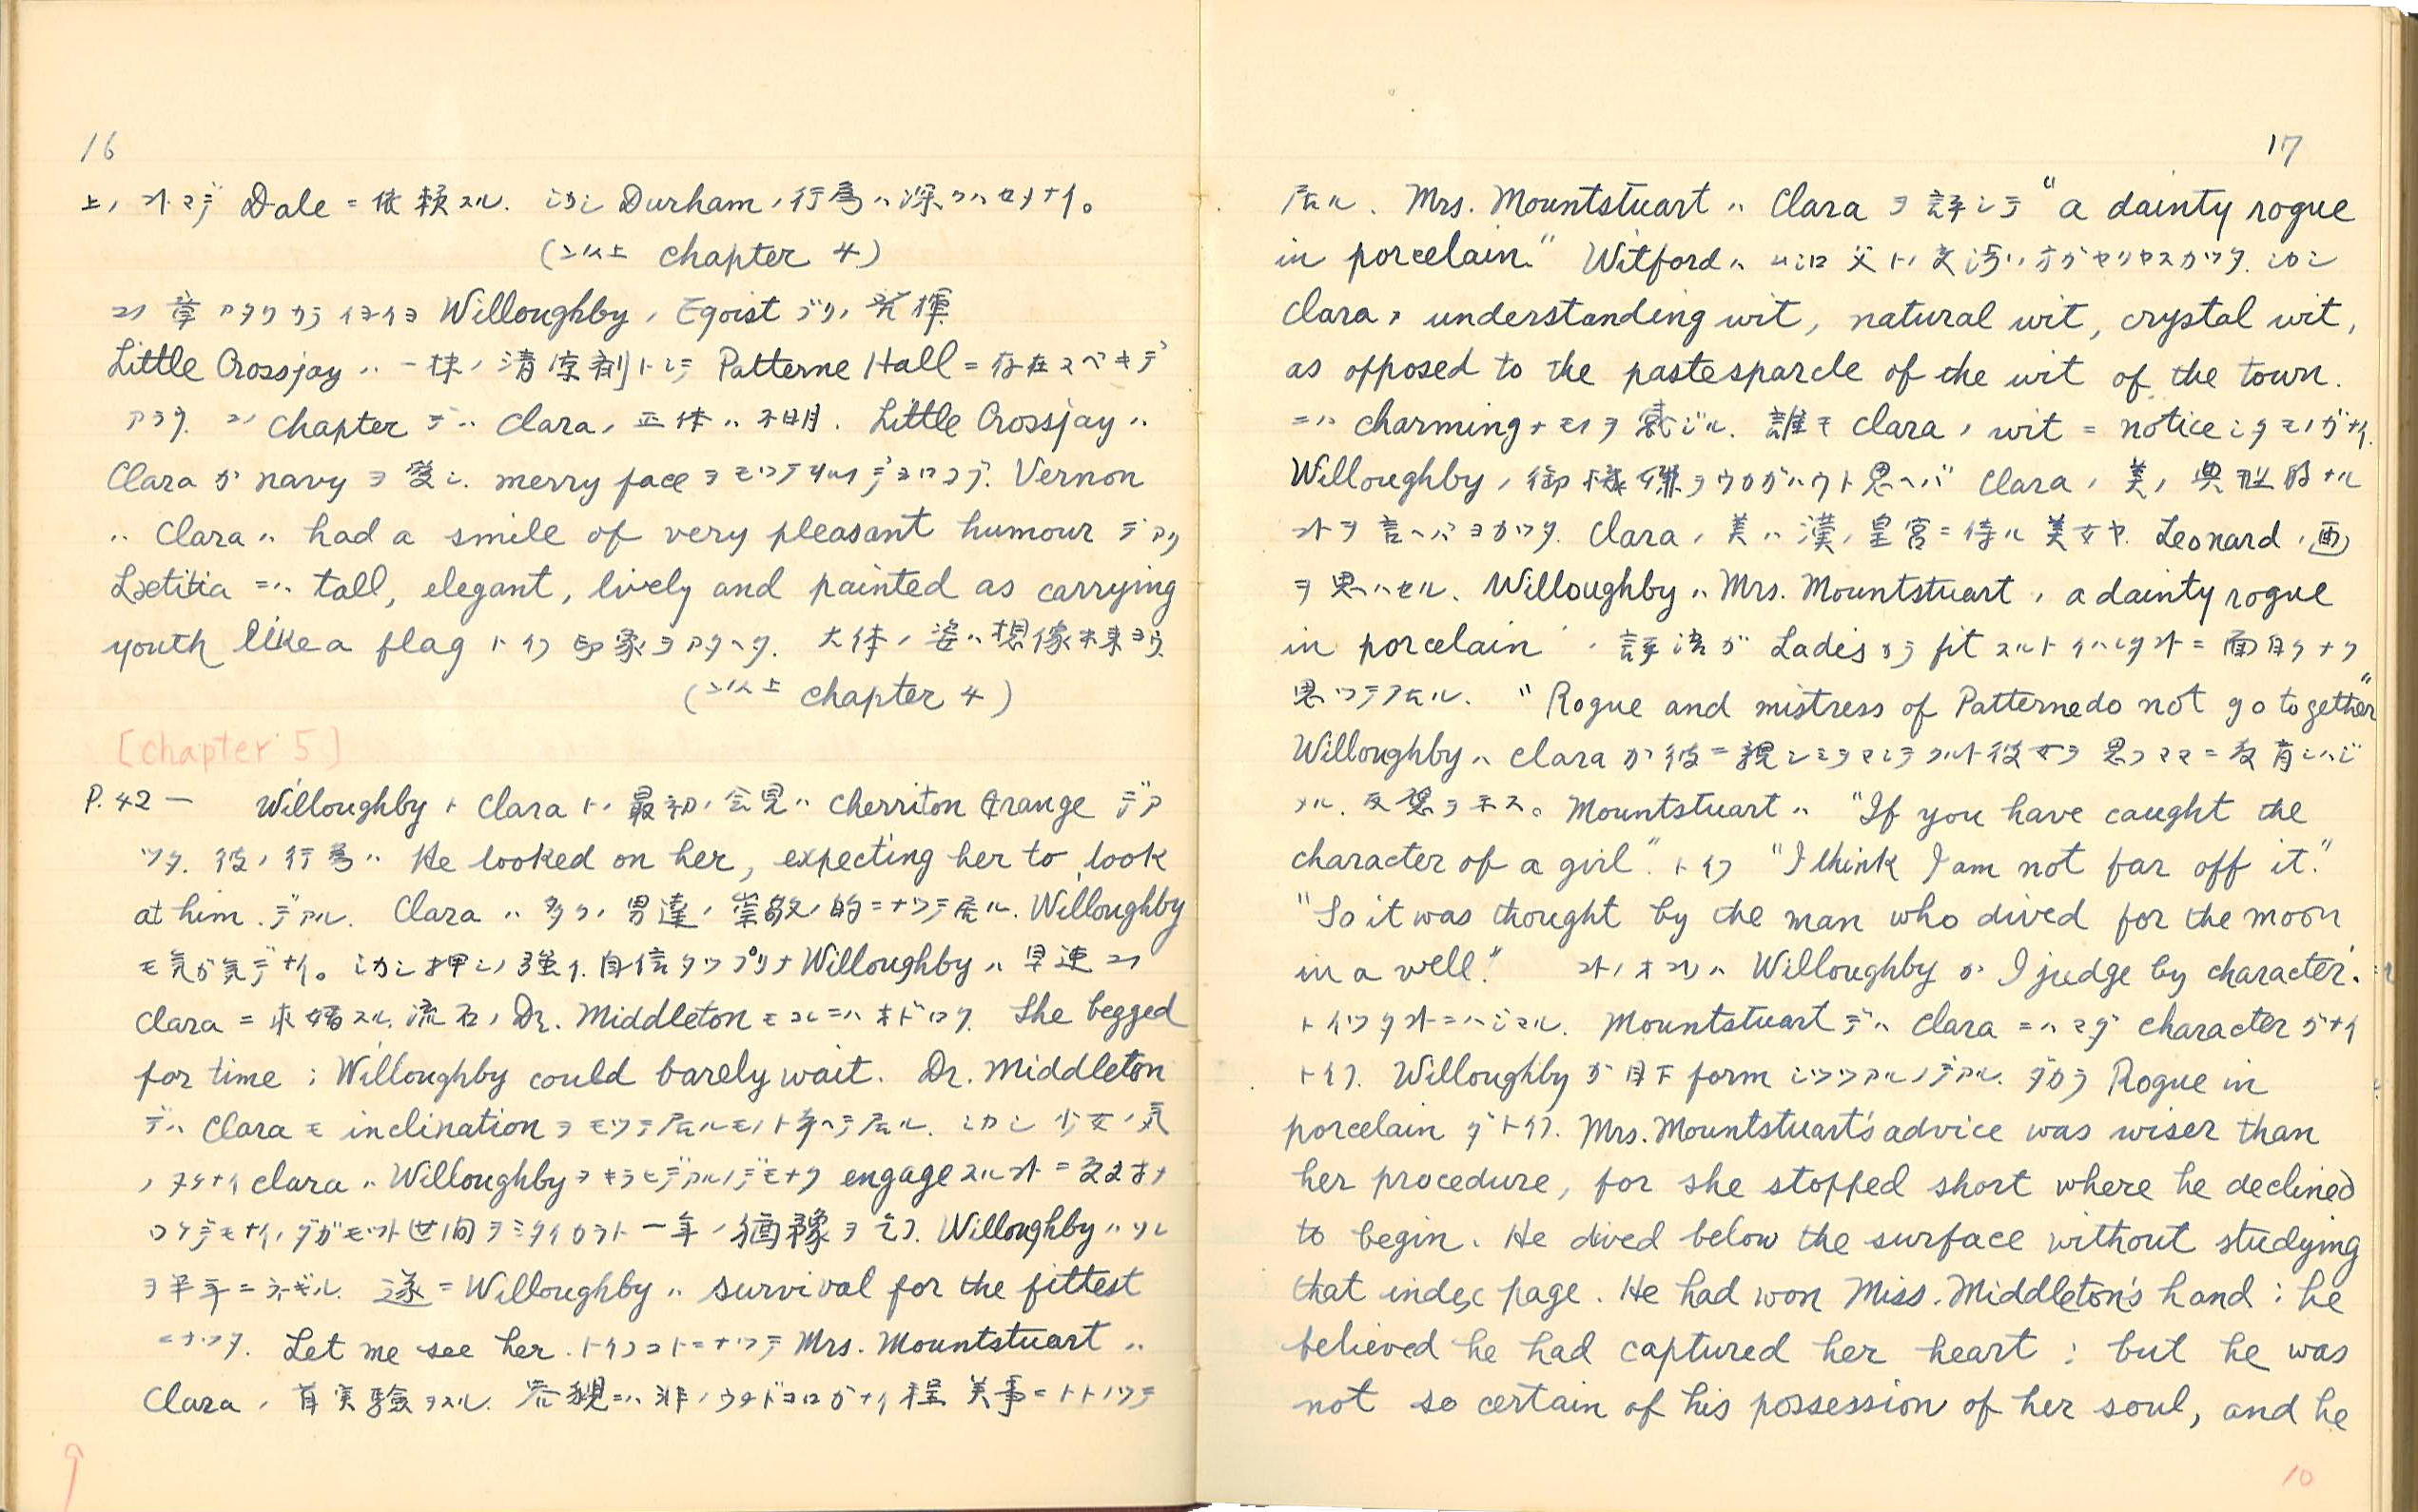 16
上ノコトマデ Dale ニ依頼スル. シカシ Durham ノ行為ハ深クハセメナイ。
(以上 chapter 4)
コノ章アタリカライヨイヨ Willoughby ノ Egoist ブリノ発揮
Little Crossjay ハ一抹ノ清涼剤トシテ Patterne Hall ニ存在スベキデ
アラウ. コノ chapter デハ Clara ノ正体ハ不明. Little Crossjay ハ
Clara ガ navy ヲ愛シ. merry face ヲモツテヰルノデヨロコブ. Vernon
ハ Clara ハ had a smile of very pleasant humour デアリ
Lætitia ニハ tall, elegant, lively and painted as carrying
youth like a flag トイフ印象ヲアタヘタ. 大体ノ姿ハ想像出来ヨウ
(以上 chapter 4)
[chapter 5]
P. 42 — Willoughby ト Clara トノ最初ノ会見ハ Cherriton Grange デア
ツタ. 彼ノ行為ハ He looked on her, expecting her to look
at him. デアル. Clara ハ多クノ男達ノ崇敬ノ的ニナツテ居ル. Willoughby
モ気ガ気デナイ。シカシ押シノ強イ自信タップリナ Willoughby ハ早速コノ
Clara ニ求婚スル. 流石ノ Dr. Middleton モコレニハオドロク. She begged
for time ; Willoughby could barely wait. Dr. Middleton
デハ Clara モ inclination ヲモツテ居ルモノト考ヘテ居ル. シカシ少女ノ気
ノヌケナイ Clara ハ Willoughby ヲキラヒデアルノデモナク engage スルコトニ
ワケデモナイ. ダガモツト世間ヲミタイカラト一年ノ猶豫ヲ乞フ. Willoughby ハソレ
ヲ半年ニネギル. 遂ニ Willoughby ハ survival for the fittest
ニナツタ. Let me see her. トイフコトニナツテ Mrs. Mountstuart ハ
Clara ノ首実験ヲスル. 容貌ニハ非ノウチドコロガナイ程美事ニトトノツテ
9
17
居ル. Mrs. Mountstuart ハ Clara ヲ評シテ "a dainty rogue
in porcelain." Witford ハムシロ父トノ交渉ノ方ガヤリヤスカツタ. シカシ
Clara ノ understanding wit, natural wit, crystal wit,
as opposed to the pastesparcle of the wit of the town.
ニハ charming ナモノヲ感ジル. 誰モ Clara ノ wit ニ notice シタモノガナイ.
Willoughby ノ御機嫌ヲウカガハウト思ヘバ Clara ノ美ノ典型的ナル
コトヲ言ヘバヨカツタ. Clara ノ美ハ漢ノ皇宮ニ侍ル美女ヤ. Leonard ノ画
ヲ思ハセル. Willoughby ハ Mrs. Mountstuart ノ a dainty rogue
in porcelain ノ評語ガ Ladies カラ fit スルトイハレタコトニ面白クナク
思ツテ居ル. "Rogue and mistress of Patterne do not go together"
Willoughby ハ Clara ガ彼ニ親シミヲマシテクルト彼女ヲ思フママニ教育シハジ
メル. 反感ヲ示ス。Mountstuart ハ "If you have caught the
character of a girl". トイフ "I think I am not far off it."
"So it was thought by the man who dived for the moon
in a well." コトノオコリハ Willoughby ガ I judge by character.
トイツタコトニハジマル. Mountstuart デハ Clara ニハマダ character ガナイ
トイフ. Willoughby ガ目下 form シツツアルノデアル. ダカラ Rogue in
porcelain ダトイフ. Mrs. Mountstuart's advice was wiser than
her procedure, for she stopped short where he declined
to begin. He dived below the surface without studying
that index page. He had won Miss. Middleton's hand ; he
believed he had captured her heart ; but he was
not so certain of his possession of her soul, and he
10